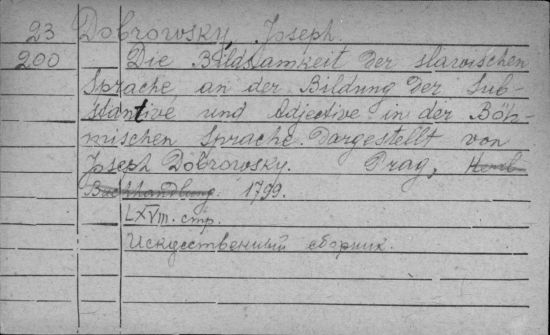 23 Dobrowsky, Joseph.
200 Die Bildsamkeit der slawischen
Sprache an der Bildung der Sub-
stantive und Adjective in der Böh-
mischen Sprache. Dargestellt von
Joseph Dobrowsky. Prag, Herrl
Buchhandlung. 1799.
LXVIII. стр.
Искусственный сборник.